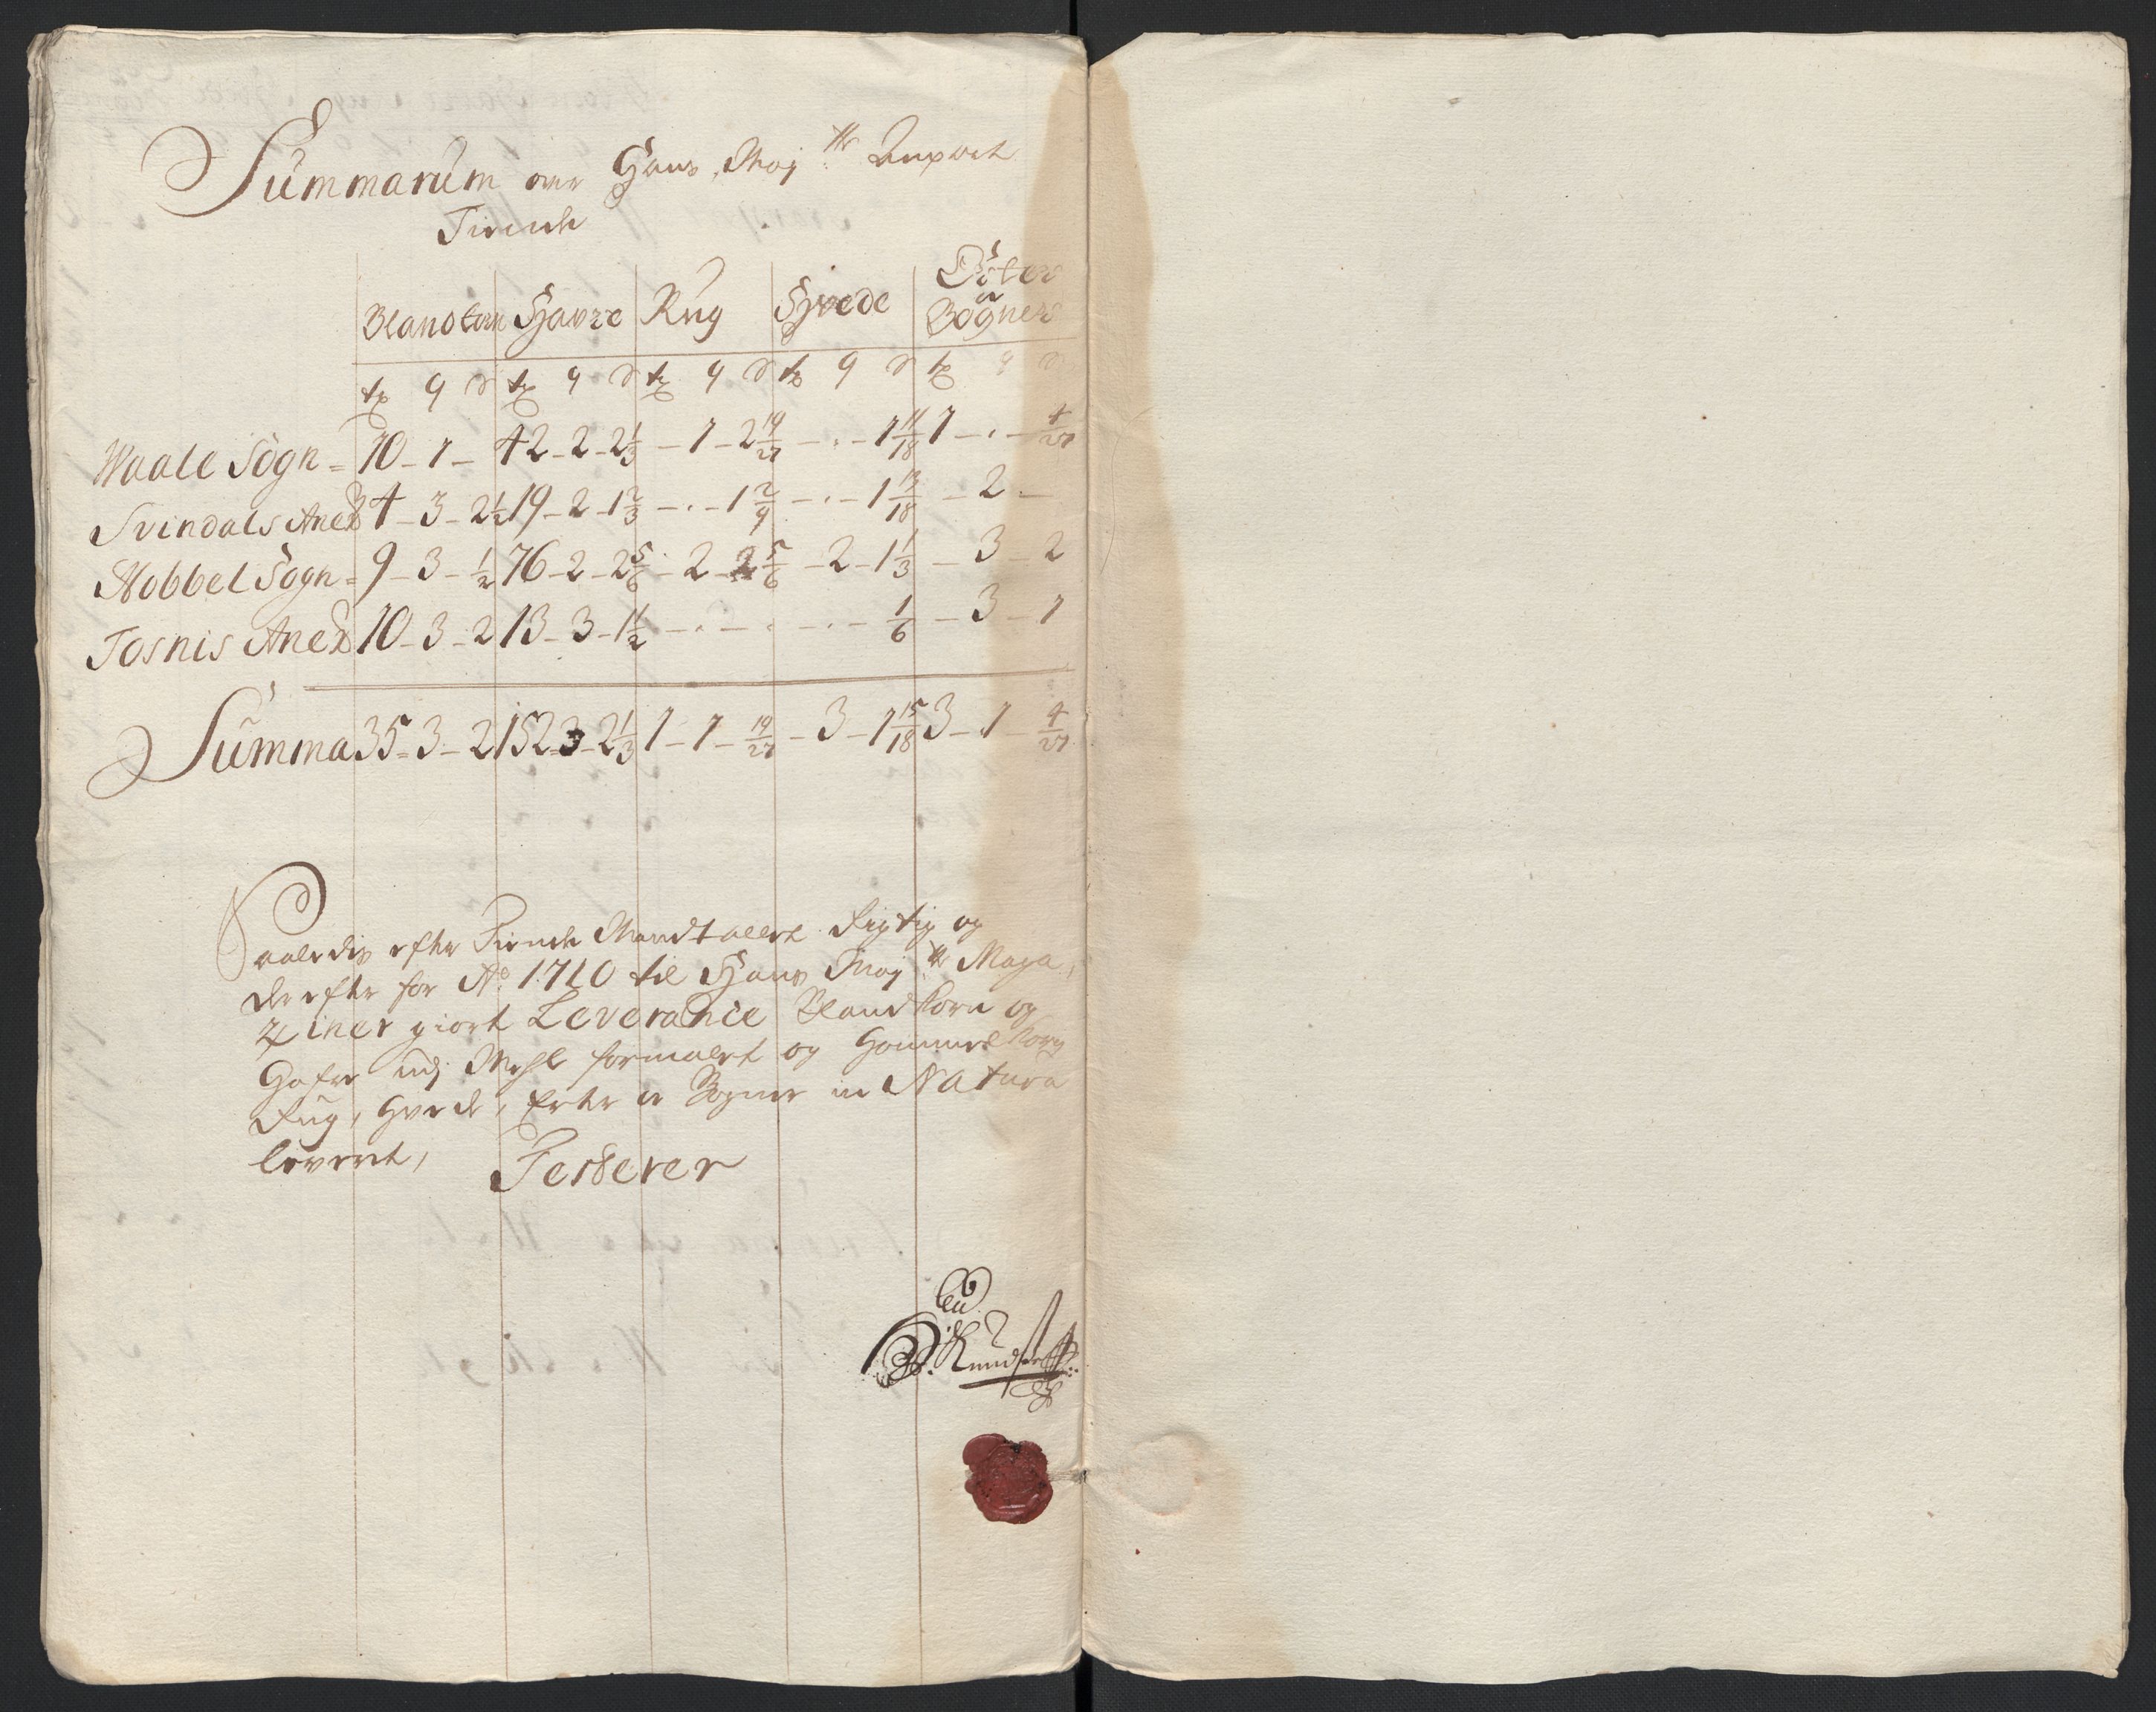 Summarum over Hans Maj:tts Anpart
Tiende
Blandkorn Havre Rug Hvede Erter
a Bogner
tr q r tr q r tr q r tr q r tr q r
Waale Sogn = 10 - 1 - 42 - 2 - 2 1/3 - 1 - 2 19/27 - . - 1 11/18 1 - . - 4/27
Svindals Anex 4 - 3 - 2 1/2 19 - 2 - 1 2/3 - . - 1 2/9 - . - 1 13/18 - 2 -
Hobbel Sogn = 9 - 3 - 1/2 76 - 2 - 2 5/6 - 2 - 2 5/6 - 2 - 1 1/3 - 3 - 2
Tosnis Anex 10 - 3 - 2 13 - 3 - 1 1/2 - . - . - . - 1/6 - 3 - 1
Summa 35 = 3 - 2 152 = 3 - 2 1/3 1 - 1 - 19/27 - 3 - 1 15/18 3 - 1 4/27
Saaledis efter Tiende Mandtallet Rigtig og
derefter for Ao 1710 til Hans Maj:tts Maga,
ziner giort Leverance Blandkorn og
Hafre udj Mehl formalet og Gammelkorn
Rug, Hvede, Erter a Bogner in Natura
leveret, Testerer
Knudsen